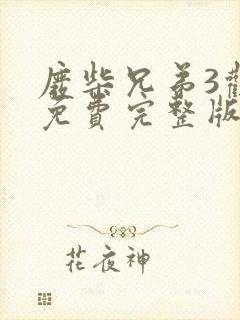 废柴兄弟3觀
免費完整版
花夜神